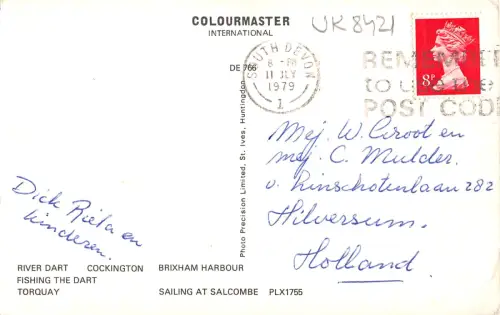 COLOURMASTER
INTERNATIONAL
UK8421
DE 766
SOUTH DEVON
8 - PM
11 JLY
1979
1
REMEMBER
to use the
POST CODE
8P
Photo Precision Limited, St. Ives, Huntingdon
Mej. W. Groot en
mej. C. Mulder.
v. Linschotenlaan 282
Hilversum.
Holland.
Dick Rieta en
kinderen.
RIVER DART COCKINGTON BRIXHAM HARBOUR
FISHING THE DART
TORQUAY SAILING AT SALCOMBE PLX1755